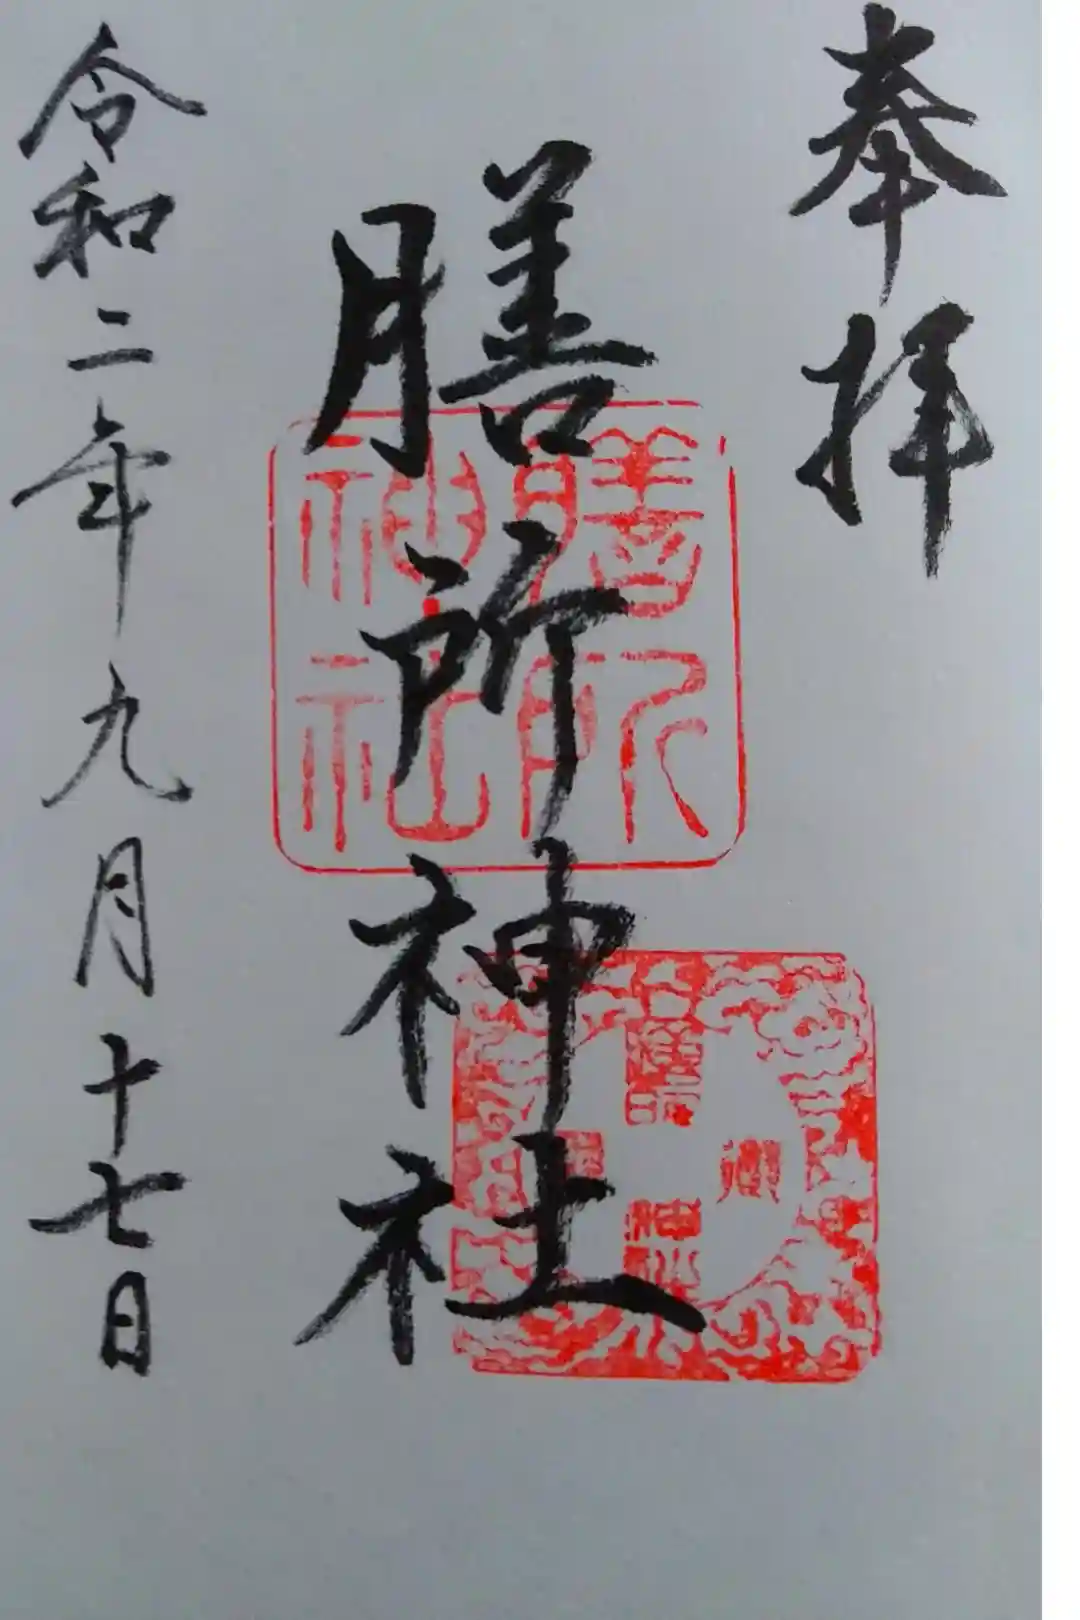 奉拝
膳所神社
膳所
神社
令和二年九月十七日